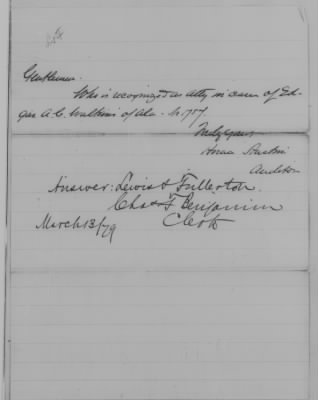 Gentlemen.
Who is recognized as atty in case of Ed-
gar A. C. Watkins of Ala. No 1757.
Truly yours
Horace Austin
Auditor
Answer: Lewis & Fullerton.
Chas. F. Benjamin
Clerk
March 13/79